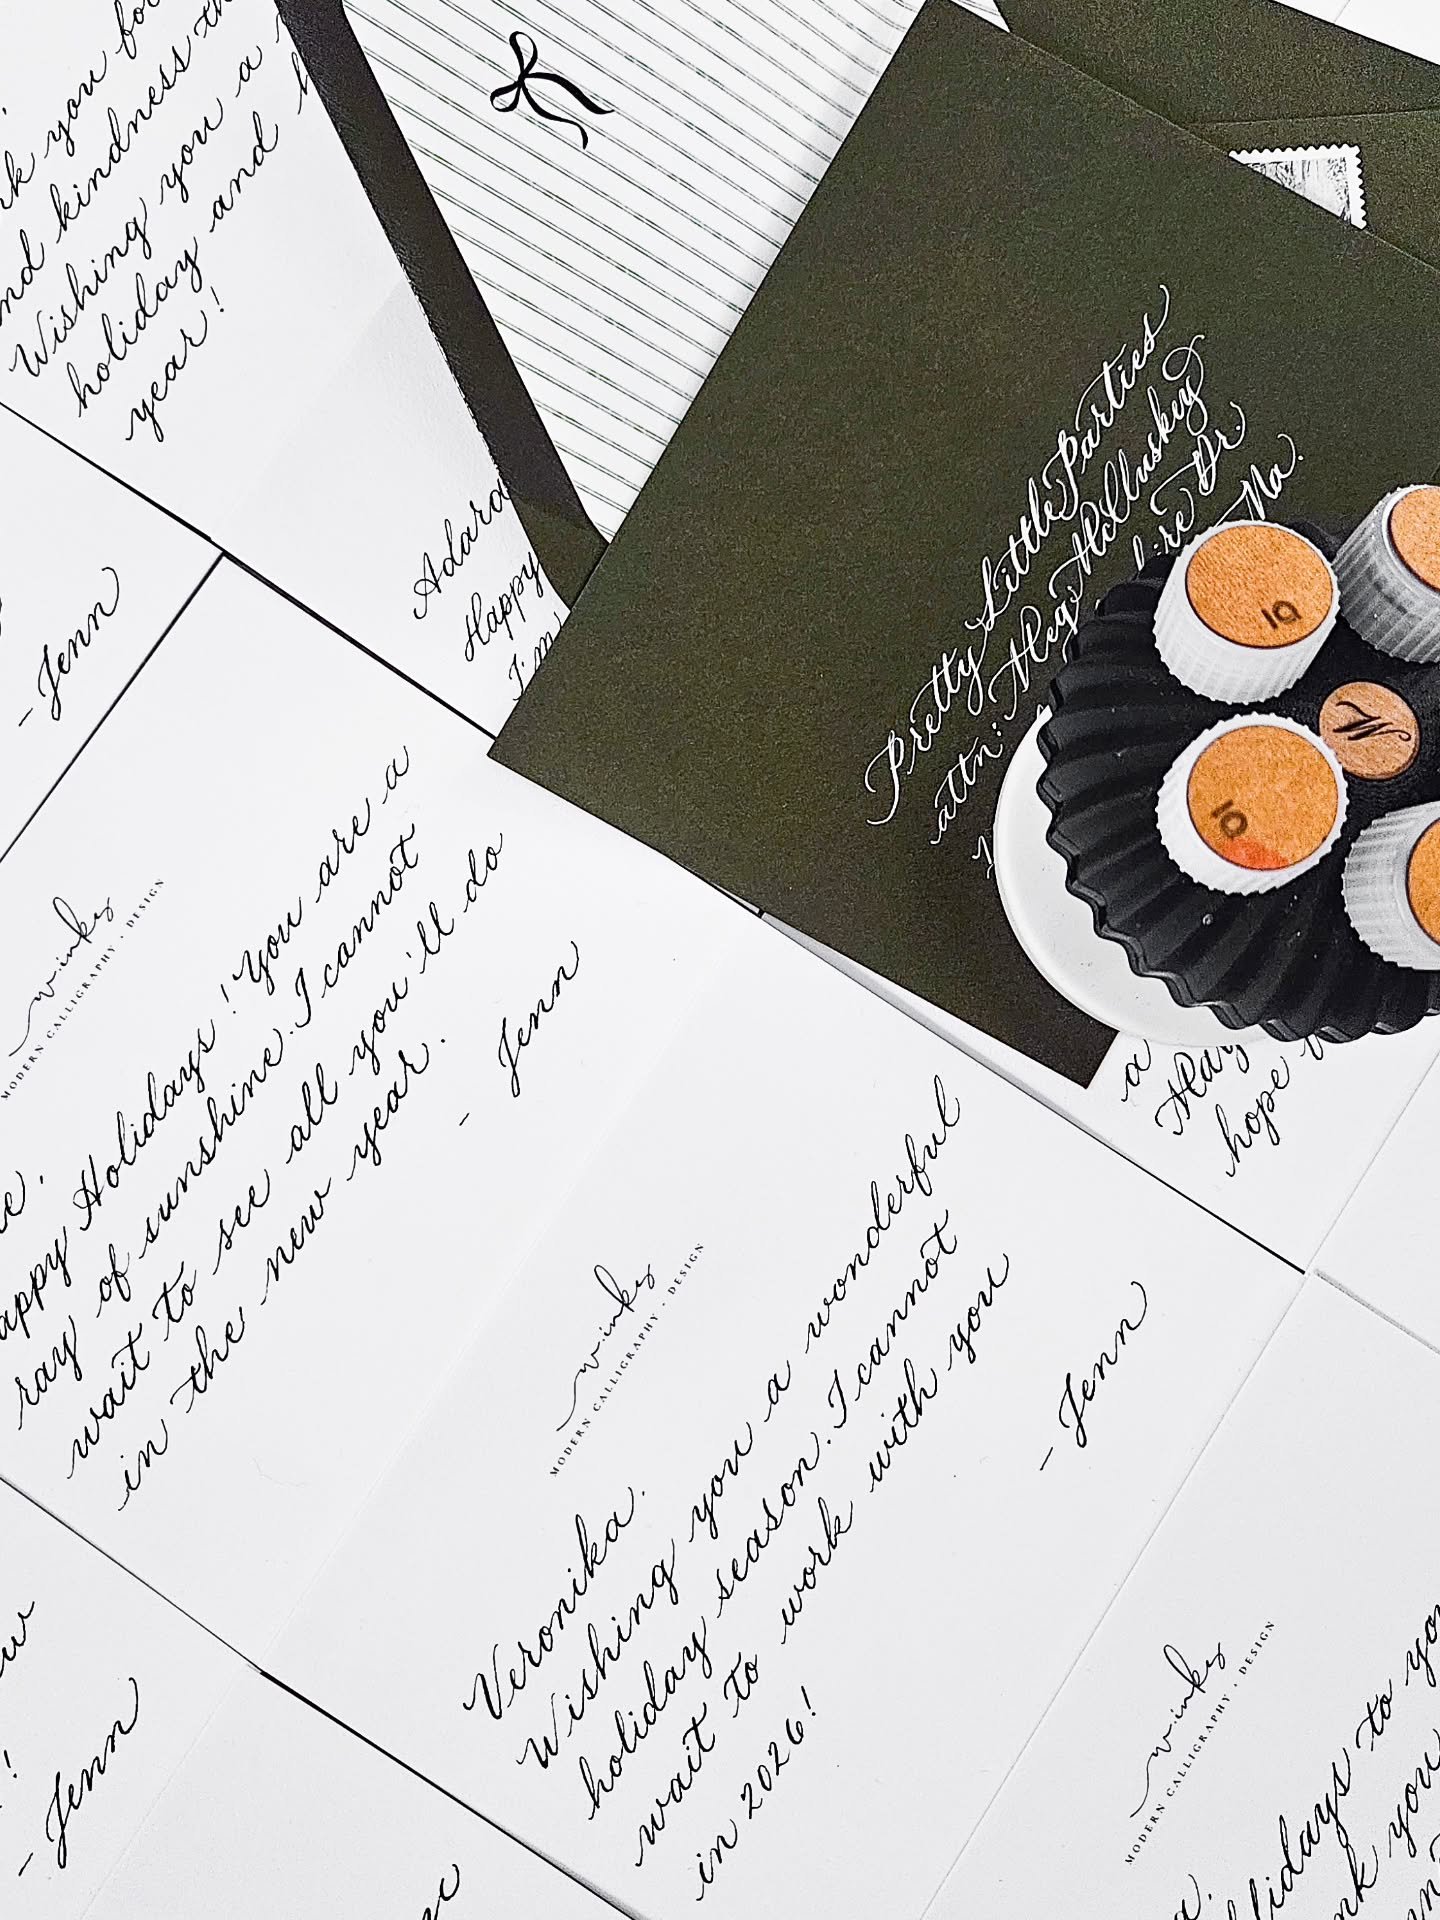 you for
and kindness
Wishing you a
holiday and
year!
- Jenn
Adara
Happy
I'm
Pretty Little Parties
attn: Meg McCluskey
Dr.
Ma.
ID
ID
W
w.inks
MODERN CALLIGRAPHY · DESIGN
Happy Holidays! You are a
ray of sunshine. I cannot
wait to see all you'll do
in the new year.
- Jenn
a
Mary
hope
w.inks
MODERN CALLIGRAPHY · DESIGN
Veronika.
Wishing you a wonderful
holiday season. I cannot
wait to work with you
in 2026!
- Jenn
- Jenn
w.inks
MODERN CALLIGRAPHY · DESIGN
Holidays to you
you